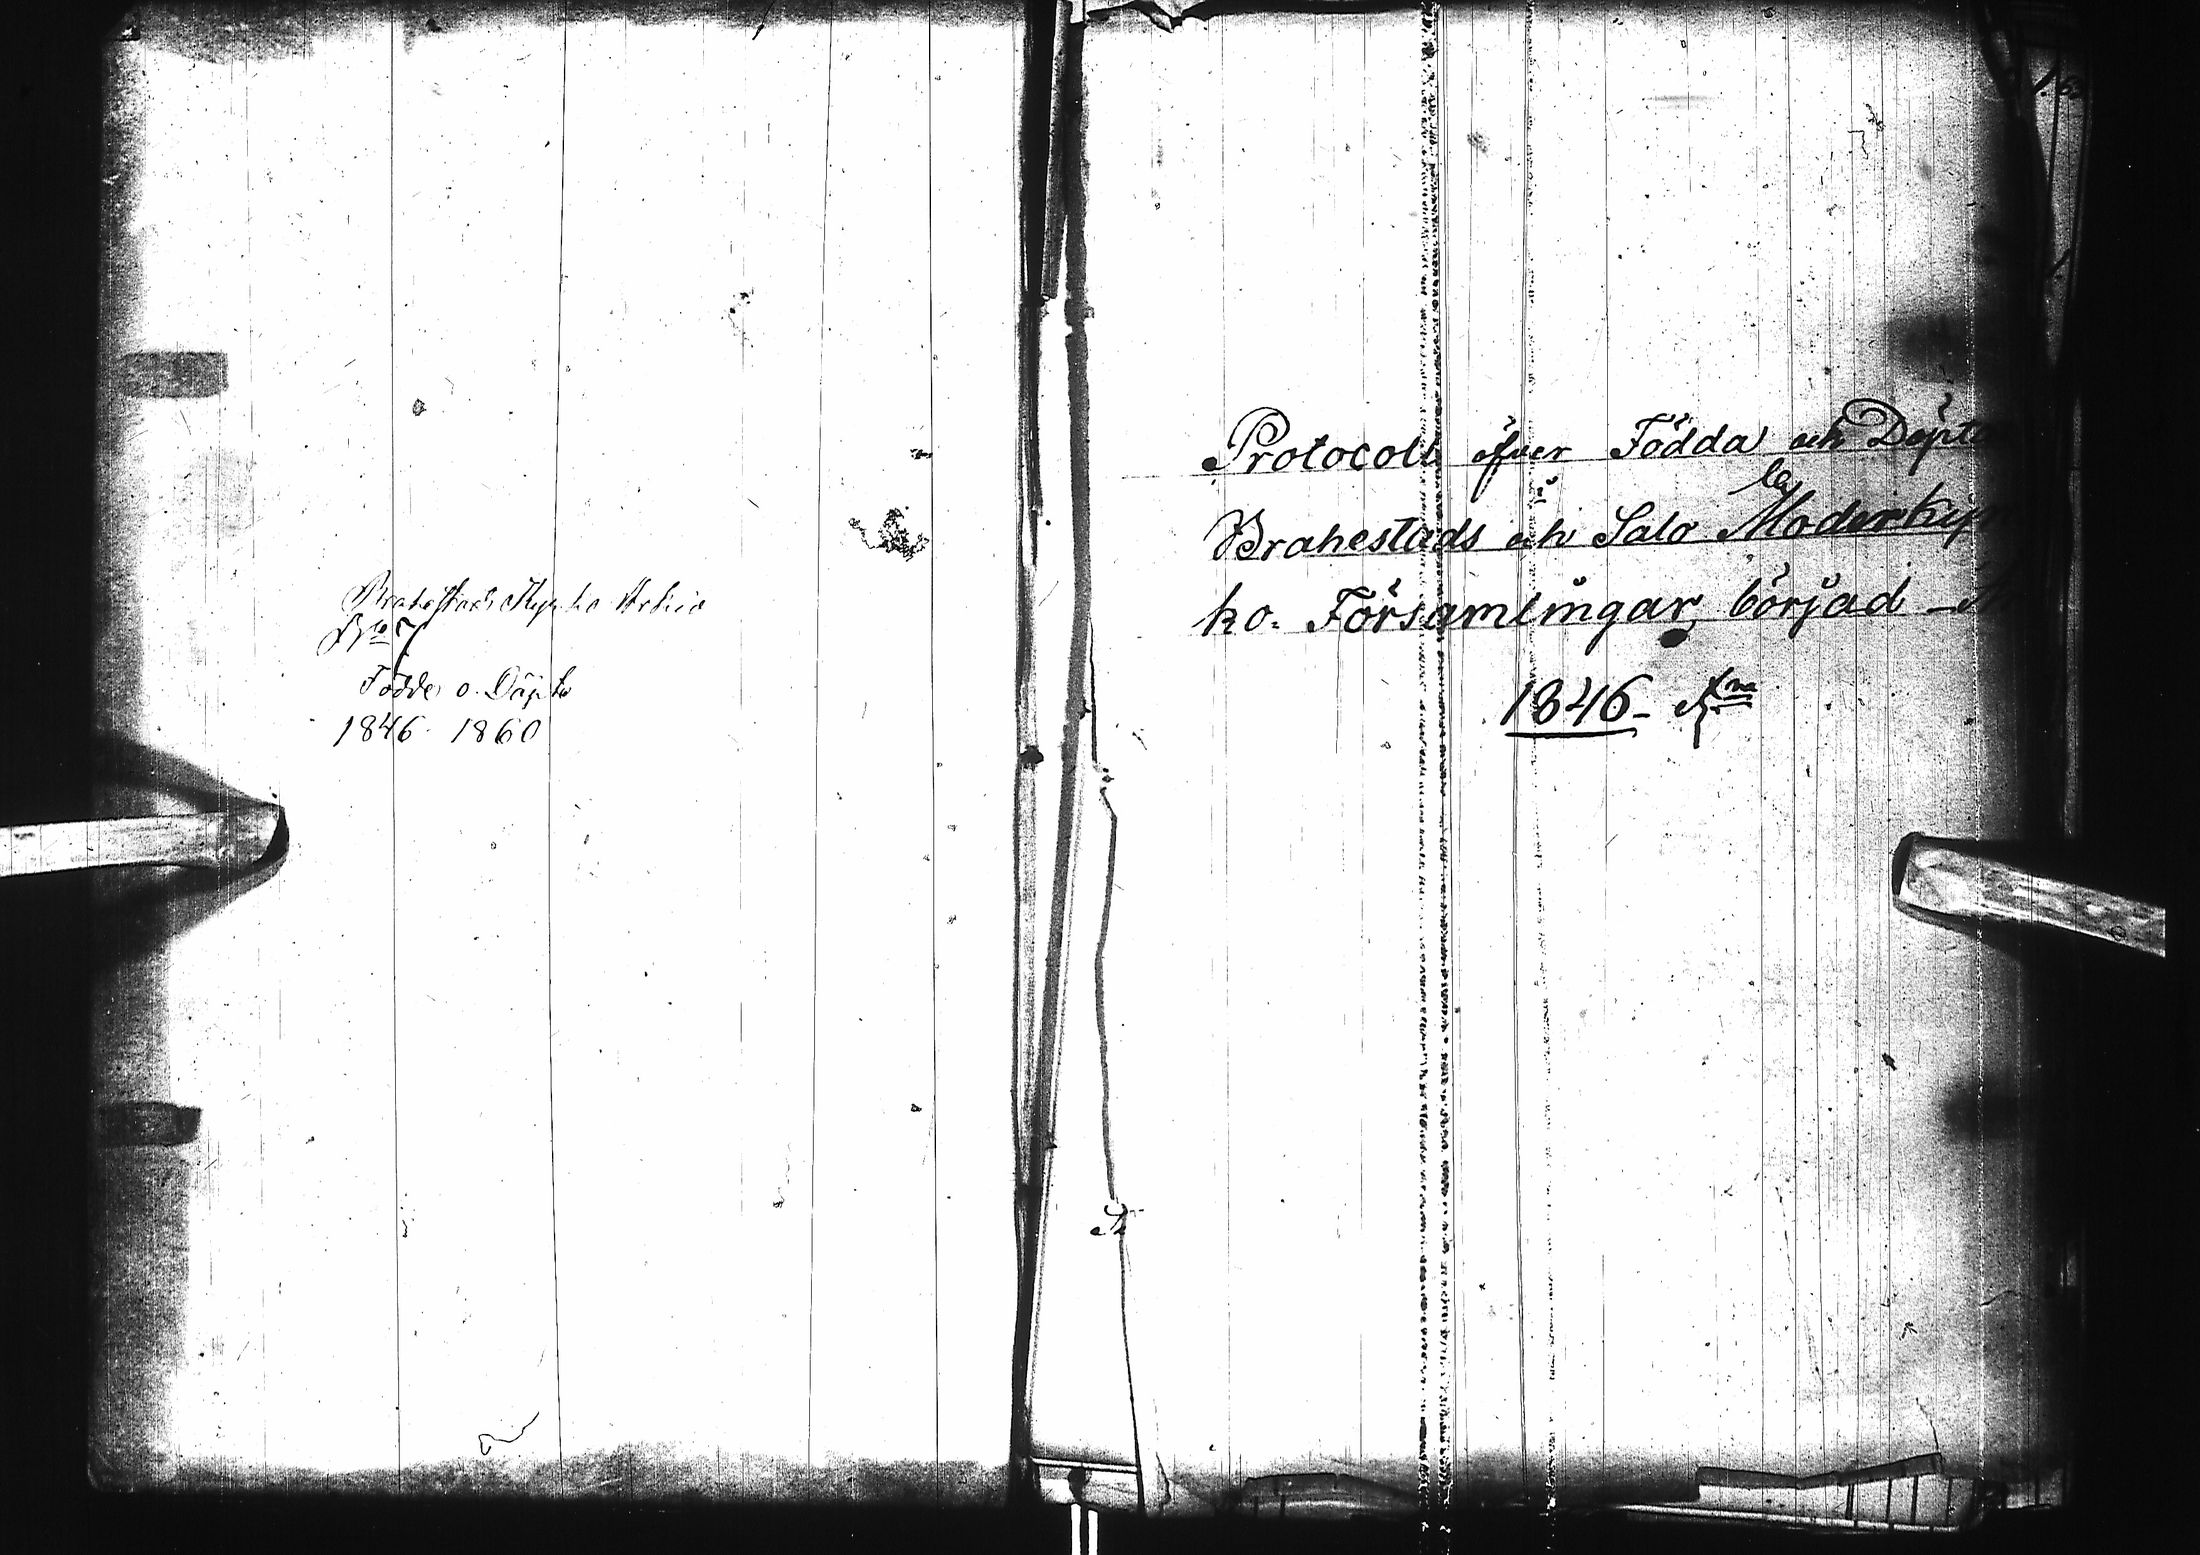 Brahestads Kyrko Arkiv
N:o 7
Födde o. Döpte
1846-1860
Protocoll öfver Födda och Döpte
i
Brahestads och Salo Moderkyr
ko-Församlingar, börjad
1846